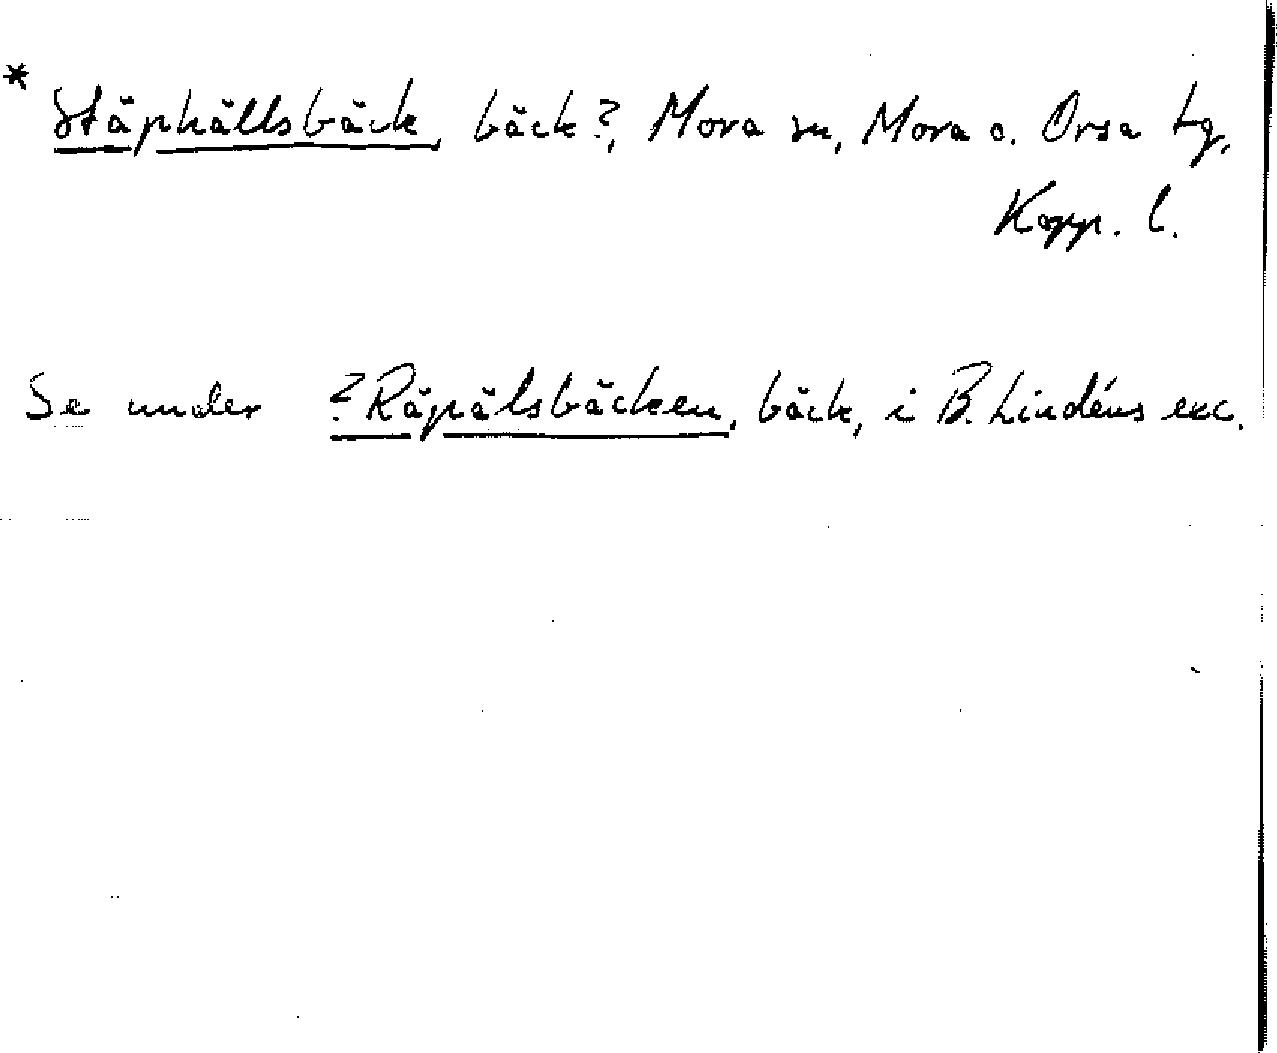 * Stäphällsbäck, bäck?, Mora sn, Mora o. Orsa tg,
Kopp. l.
Se under ?Räpälsbäcken, bäck, i B. Lindéns exc.